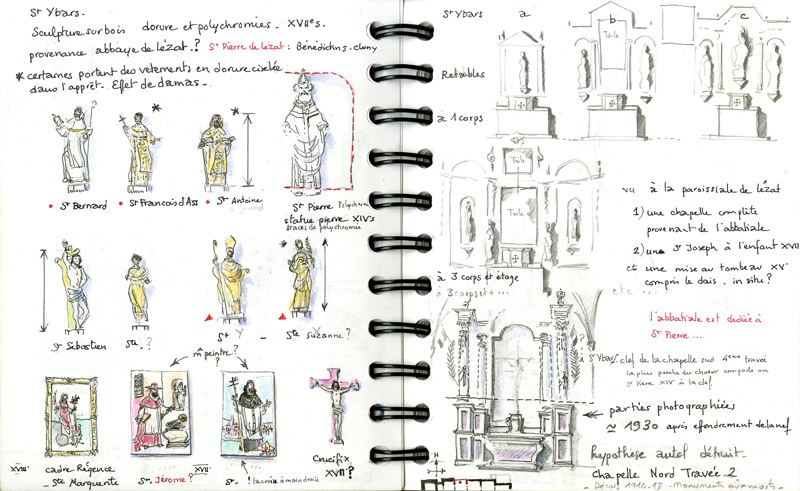 St Ybars.
Sculpture sur bois dorure et polychromies. XVIIes.
provenance abbaye de lezat.? St Pierre de lézat : Bénédictins. cluny
* certaines portent des vetements en dorure ciselée
dans l'apprêt. Effet de damas.
* *
• St Bernard • St Francois d'Ass • St Antoine
St Pierre Polychrome
statue pierre XIVs
traces de polychromie
St Sébastien Ste . ? St Y - Ste Suzanne?
m̂ peintre?
XVIIIe cadre Régence
Ste Marguerite
Str. Jérome? XVIIe
St- ! la croix à main droite
Crucifix
XVII?
St Ybars a b c
Toile
Retables
à 1 corps
Toile
Toile
à 3 corps et étage
à 3 corps et ...
vu à la paroissiale de lézat
1) une chapelle complète
provenant de l'abbatiale
2) une St Joseph à l'enfant XVII
et une mise au tombeau XVe
compris le dais . in situ ?
etc ...
l'abbatiale est dediée à
St Pierre ...
?
à St Ybars clef de la chapelle sud 4eme travée
la plus proche du choeur comporte un
St Pierre XIV à la clef
parties photographiées
≃ 1930 après effondrement de la nef
hypothèse autel détruit.
Chapelle Nord Travée 2
- Décor 1914.18 - Monuments aux morts -